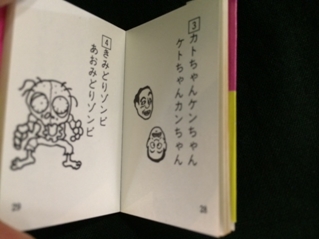 3 カトちゃんケンちゃん
ケトちゃんカンちゃん
28
4 きみどりゾンビ
あおみどりゾンビ
29